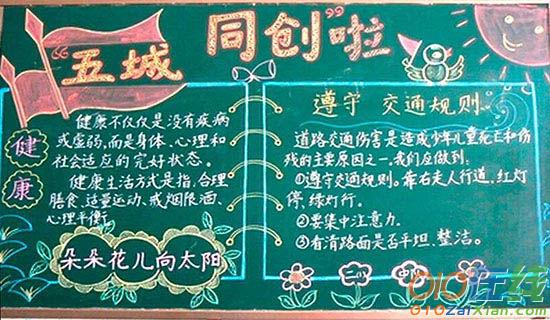 “五城 同创”啦
健康
健康不仅仅是没有疾病
或虚弱,而是身体、心理和
社会适应的完好状态。
健康生活方式是指,合理
膳食、适量运动、戒烟限酒、
心理平衡。
朵朵花儿向太阳
遵守 交通规则。
道路交通伤害是造成少年儿童死亡和伤
残的主要原因之一,我们应做到:
①遵守交通规则。靠右走人行道,红灯
停,绿灯行。
②要集中注意力。
③看清路面是否平坦、整洁。
二(
010在线
010zaixian.com